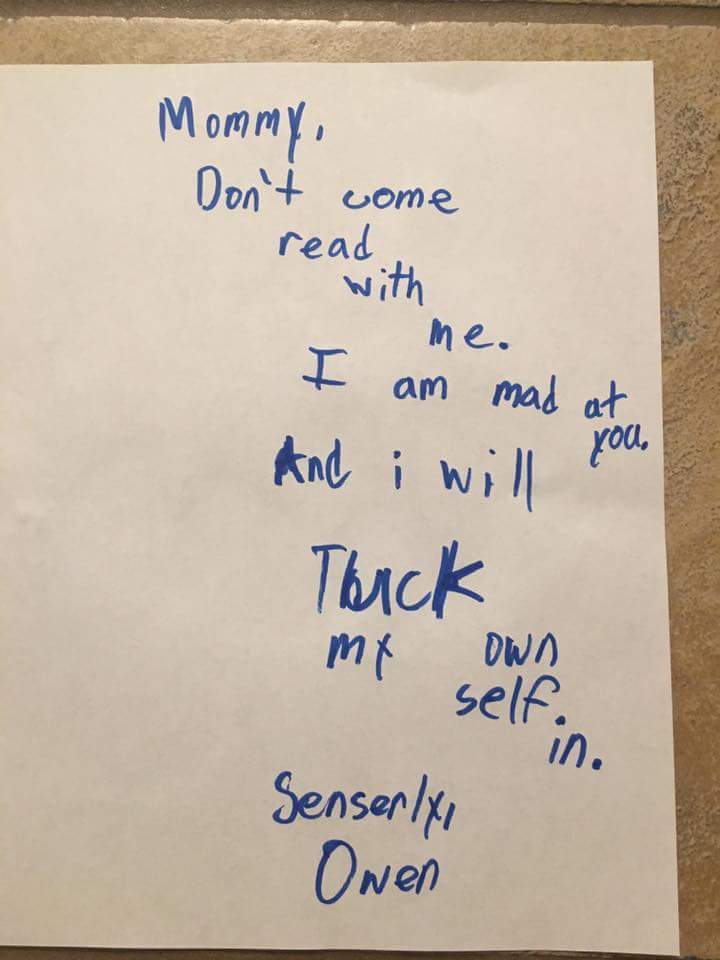 Mommy,
Don't come
read
with
me.
I am mad at
you.
And i will
Tuck
my own
self.
in.
Senserly,
Owen